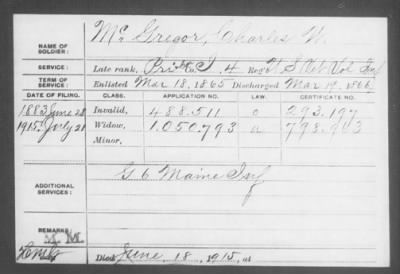 Mc Gregor, Charles W.
NAME OF SOLDIER:
SERVICE: Late rank, Priv Co. I, 4 Reg't U.S. Vet Vol Inf
TERM OF SERVICE: Enlisted Mar 18, 1865 Discharged Mar 19, 1866
DATE OF FILING. CLASS. APPLICATION NO. LAW. CERTIFICATE NO.
1883 June 28 Invalid, 488.511 293.197
1915 July 21 Widow, 1.050.793 793.943
Minor,
G 6 Maine Inf
ADDITIONAL SERVICES:
REMARKS:
Died June 18, 1915, at